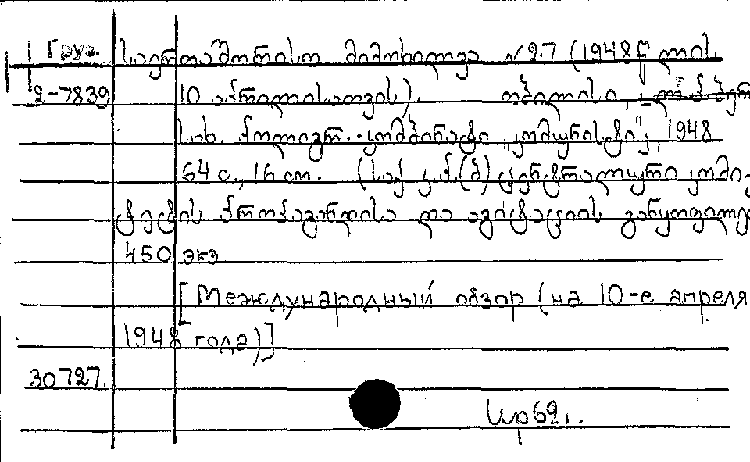 Груз. საერთაშორისო მიმოხილვა №27 (1948 წ. წლის
2-7839 10 აპრილისათვის). თბილისი,
სახ. პოლიგრ. კომბინატი „კომუნისტი“, 1948
64 с., 16 см. (საქ. კ.პ.(ბ) ცენტრალური კომი
ტეტის პროპაგანდისა და აგიტაციის განყოფილე
450 экз
[Международный обзор (на 10-е апреля
1948 года)]
30727.